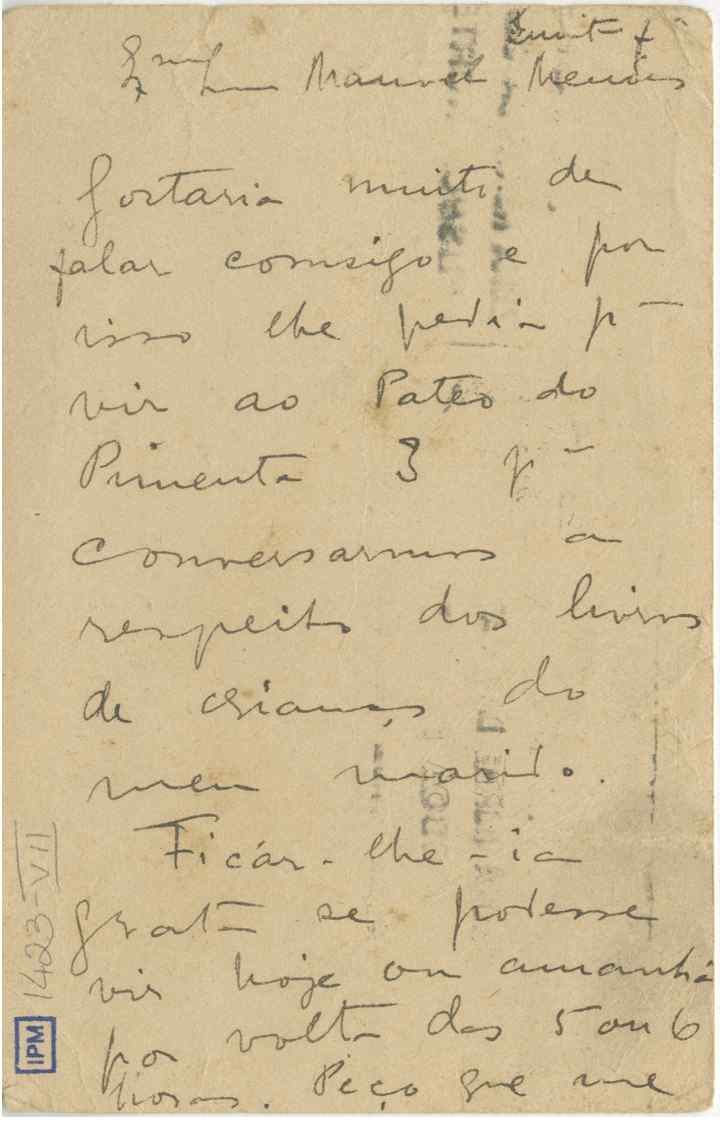 Exmo Snr Manuel Mendes
Gostaria muito de
falar comsigo e por
isso lhe pedia pª
vir ao Pateo do
Pimenta 3 pª
conversarmos a
respeito dos livros
de crianças do
meu marido.
Ficár-lhe-ia
grata se podesse
vir hoje ou amanhã
por volta das 5 ou 6
horas. Peço que me
1423-VII
IPM